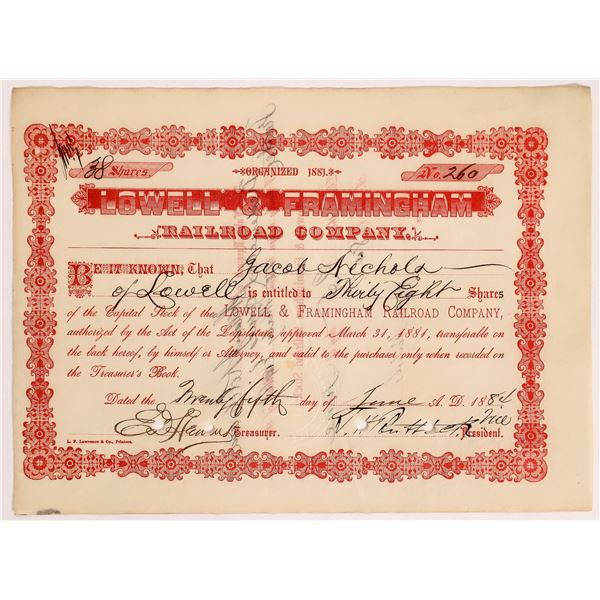 38 Shares. ORGANIZED 1881. No. 260
LOWELL & FRAMINGHAM
RAILROAD COMPANY.
BE IT KNOWN, That Jacob Nichols
of Lowell is entitled to Thirty Eight Shares
of the Capital Stock of the LOWELL & FRAMINGHAM RAILROAD COMPANY,
authorized by the Act of the Legislature, approved March 31, 1881, transferable on
the back hereof, by himself or Attorney, and valid to the purchaser only when recorded on
the Treasurer's Book.
Dated the Twenty fifth day of June A. D. 1884
Treasurer. Vice President.
L. F. Lawrence & Co., Printers.